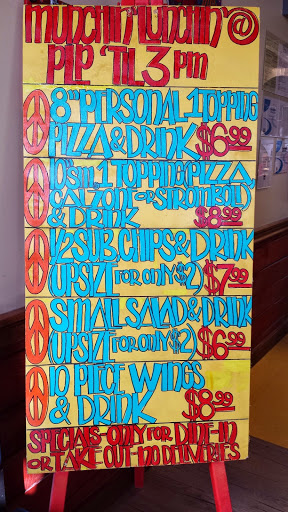 MUNCHIN' LUNCHIN' @
PLP 'TIL 3 PM
8" PERSONAL 1 TOPPING
PIZZA & DRINK $6.99
10" SM 1 TOPPING PIZZA,
CALZONE OR STROMBOLI
& DRINK $8.99
1/2 SUB, CHIPS & DRINK
(UPSIZE FOR ONLY $2) $7.99
SMALL SALAD & DRINK
(UPSIZE FOR ONLY $2) $6.99
10 PIECE WINGS
& DRINK $8.99
SPECIALS ONLY FOR DINE-IN
OR TAKE OUT-NO DELIVERIES